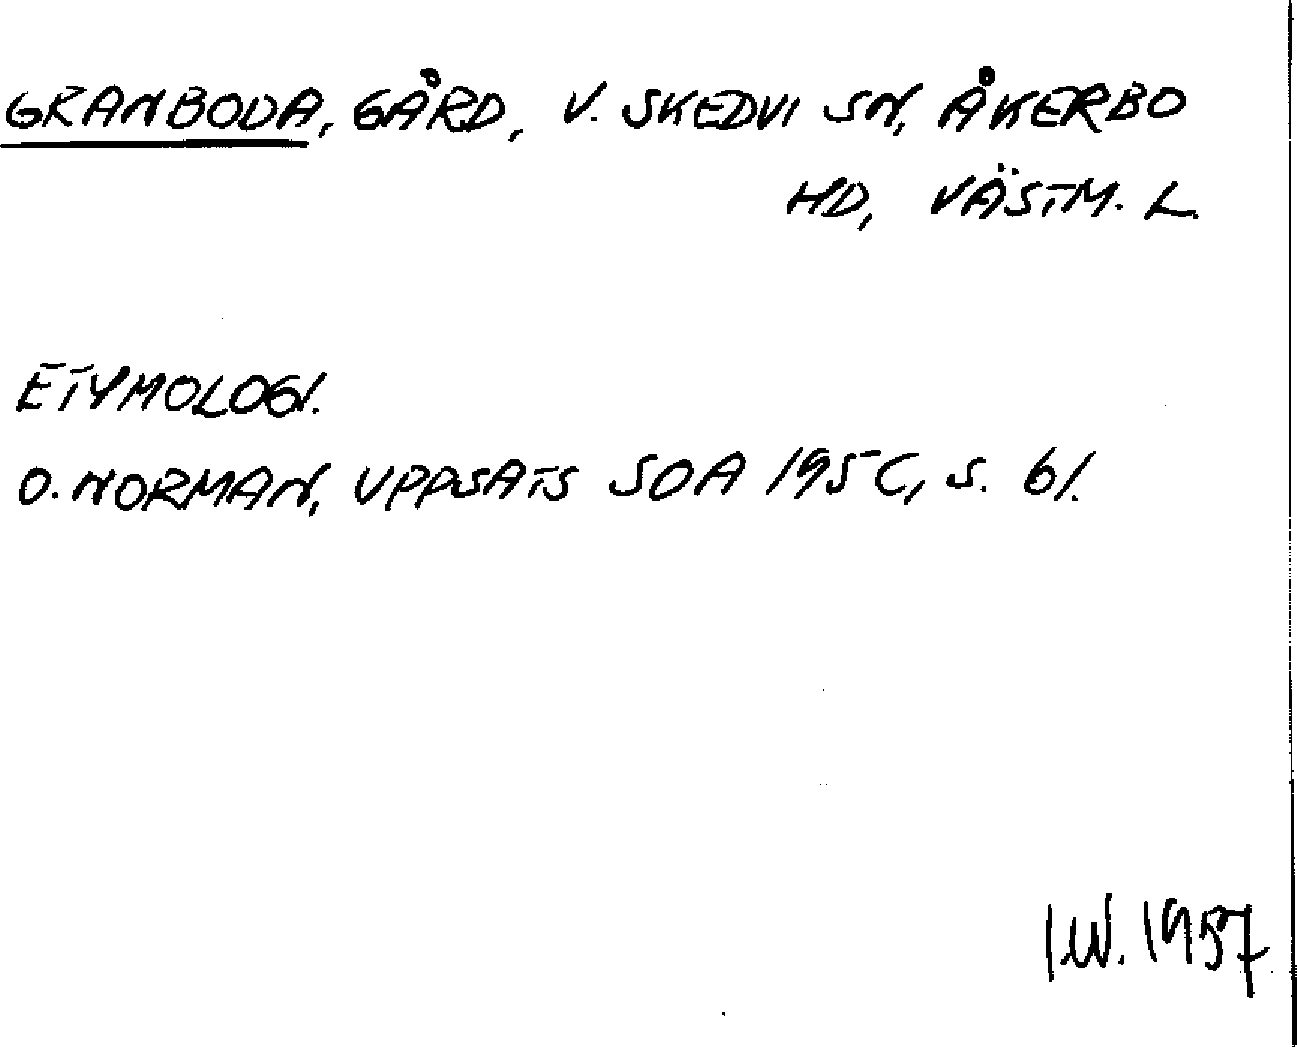 GRANBODA, GÅRD, V. SKEDVI SN, ÅKERBO
HD, VÄSTM. L.
ETYMOLOGI.
O. NORMAN, UPPSATS SOA 195C, S. 61.
I.W. 1957